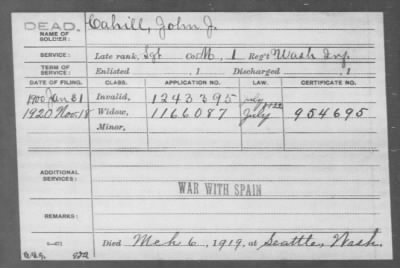 DEAD.
NAME OF SOLDIER:
Cahill, John J.
SERVICE:
Late rank, Sgt Co. M, 1 Reg't Wash Inf.
TERM OF SERVICE:
Enlisted , 1 Discharged , 1
DATE OF FILING. CLASS. APPLICATION NO. LAW. CERTIFICATE NO.
1900 Jan 31 Invalid, 1243395
1920 Nov. 18 Widow, 1166087 July 954695
Minor,
ADDITIONAL SERVICES:
WAR WITH SPAIN
REMARKS:
Died Mch 6, 1919, at Seattle, Wash.